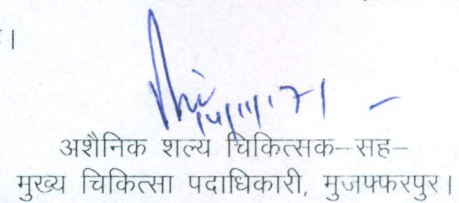 ।
14/11/17
अशैनिक शल्य चिकित्सक–सह–
मुख्य चिकित्सा पदाधिकारी, मुजफ्फरपुर।